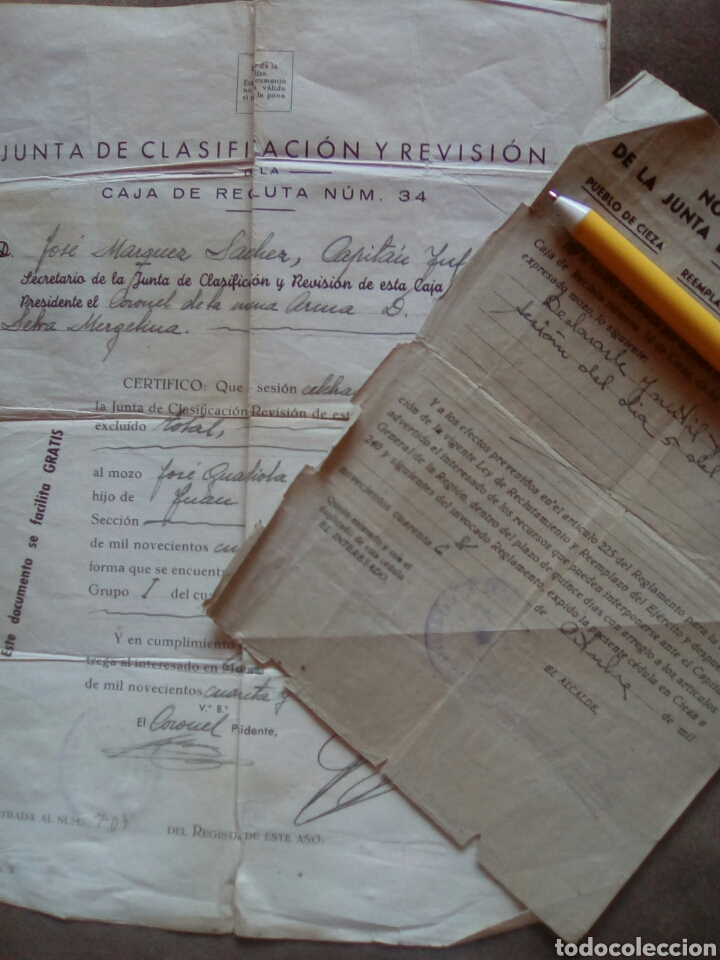 JUNTA DE CLASIFI ACIÓN Y REVISIÓN
D LA
CAJA DE RECLUTA NÚM. 34
D. José Marquez Sacher, Capitán Inf
Secretario de la Junta de Clasifición y Revisión de esta Caja
Presidente el Coronel de la misma Arma D.
Selva Mergelina.
CERTIFICO: Que sesión celebra
la Junta de Clasificación Revisión de est
excluído total,
al mozo José
hijo de Juan
Sección
de mil novecientos cu
forma que se encuent
Grupo I del cu
Y en cumplimiento
trega al interesado en
de mil novecientos cuarenta y
V.º B.º
El Coronel P idente,
TRADA AL NÚM. 704 DEL REGIST DE ESTE AÑO.
Este documento se facilita GRATIS
NO
DE LA JUNTA
PUEBLO DE CIEZA
REEMPL
Caja de Recluta número 34 de Cieza,
expresado mozo, lo siguiente:
Declararle Inutil
sesión del dia 5 del
Y a los efectos prevenidos en el artículo 225 del Reglamento para la
ción de la vigente Ley de Reclutamiento y Reemplazo del Ejército y despué
advertido el interesado de los recursos que pueden interponerse ante el Capit
General de la Región, dentro del plazo de quince días con arreglo a los artículos
240 y siguientes del invocado Reglamento, expido la presente cédula en Cieza a
de Octubre de mil
novecientos cuarenta
Quedo enterado y con el
duplicado de esta cédula
EL INTERESADO,
EL ALCALDE,
todocoleccion